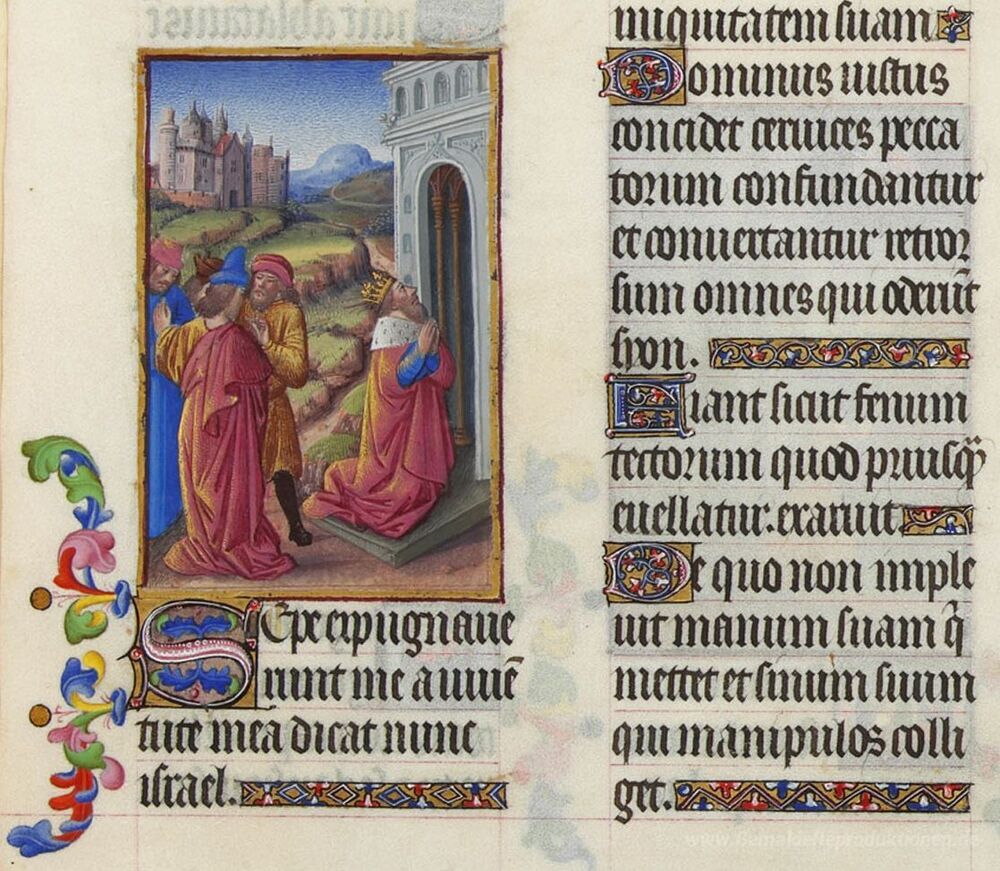 Sepe expugnaue
runt me a iuuē
tute mea dicat nunc
israel.
iniquitatem suam
Dominus iustus
concidet ceruices pecca
torum confundantur
et conuertantur retror
sum omnes qui oderūt
syon.
Fiant sicut fenum
tectorum quod priusq̄
euellatur: exaruit
De quo non imple
uit manum suam q̄
mettet et sinum suum
qui manipulos colli
get.